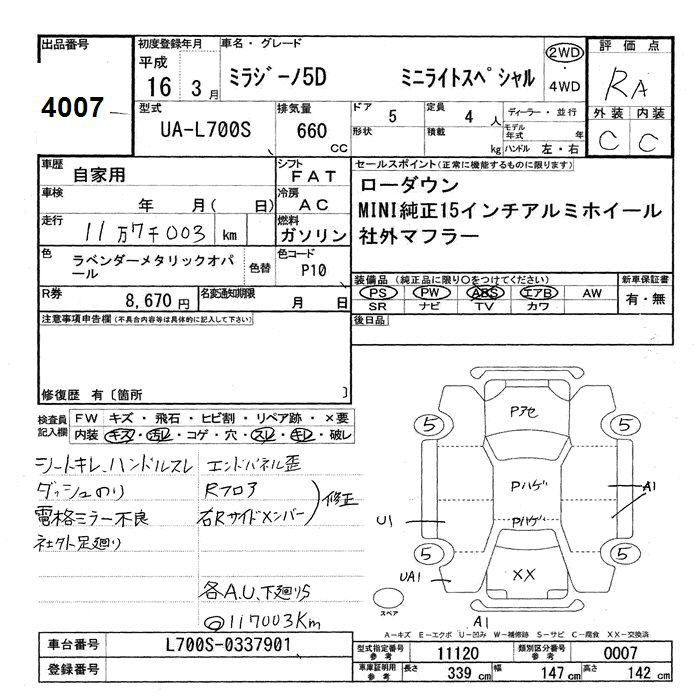 出品番号
4007
初度登録年月
平成
16 3月
車名・グレード
ミラジーノ5D ミニライトスペシャル
2WD
・
4WD
評価点
RA
型式
UA-L700S
排気量
660
CC
ドア
5
形状
定員
4 人
積載
kg
ディーラー・並行
モデル年式 年
ハンドル 左・右
外装 内装
C C
車歴
自家用
車検
年 月( 日)
走行
11万7千003 km
シフト
FAT
冷房
AC
燃料
ガソリン
セールスポイント(正常に機能するものに限ります)
ローダウン
MINI純正15インチアルミホイール
社外マフラー
色
ラベンダーメタリックオパール
色替
色コード
P10
R券
8,670円
名変通知期限
月 日
装備品 (純正品に限り○をつけてください)
PS PW ABS エアB AW
SR ナビ TV カワ
新車保証書
有・無
後日品
注意事項申告欄(不具合内容等は具体的に記入して下さい)
修復歴 有〔箇所 〕
検査員記入欄
FW キズ・飛石・ヒビ割・リペア跡・×要
内装 キズ・汚レ・コゲ・穴・スレ・キレ・破レ
シートキレ、ハンドルスレ
ダッシュのり
電格ミラー不良
社外足廻り
エンドパネル歪
Rフロア
右Rサイドメンバー
修正
各A.U、下廻りS
@117003Km
5
5
5
5
Pアセ
Pハゲ
Pハゲ
XX
A1
U1
UA1
A1
スペア
A-キズ E-エクボ U-凹み W-補修跡 S-サビ C-腐食 XX-交換済
車台番号
L700S-0337901
登録番号
型式指定番号
参考
11120
類別区分番号
参考
0007
車庫証明用
参考
長さ
339 cm
幅
147 cm
高さ
142 cm